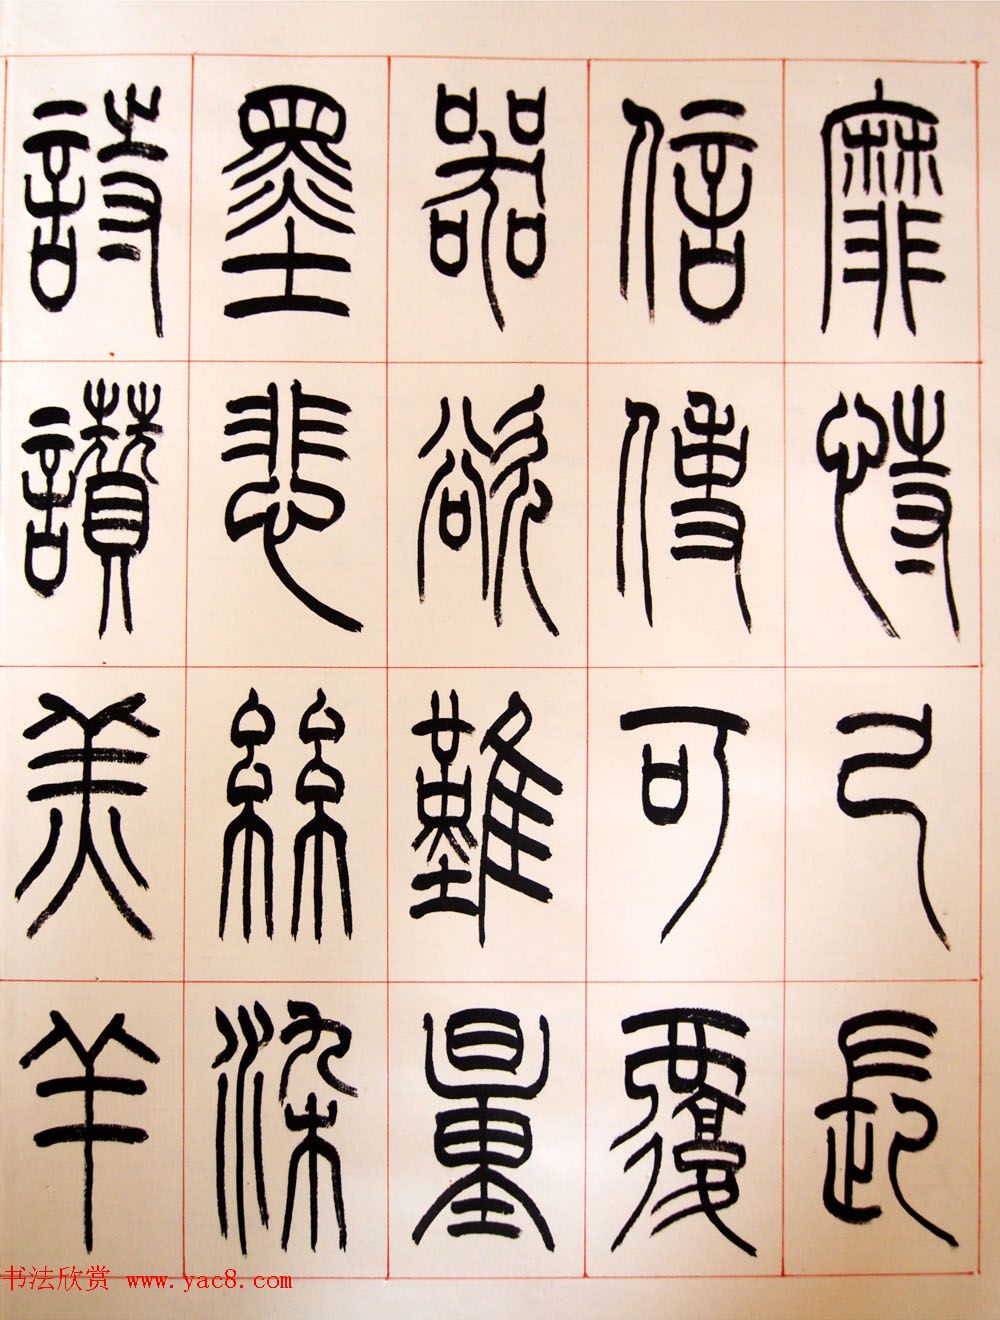 靡恃己長
信使可覆
器欲難量
墨悲絲染
詩讚羔羊
书法欣赏 www.yac8.com